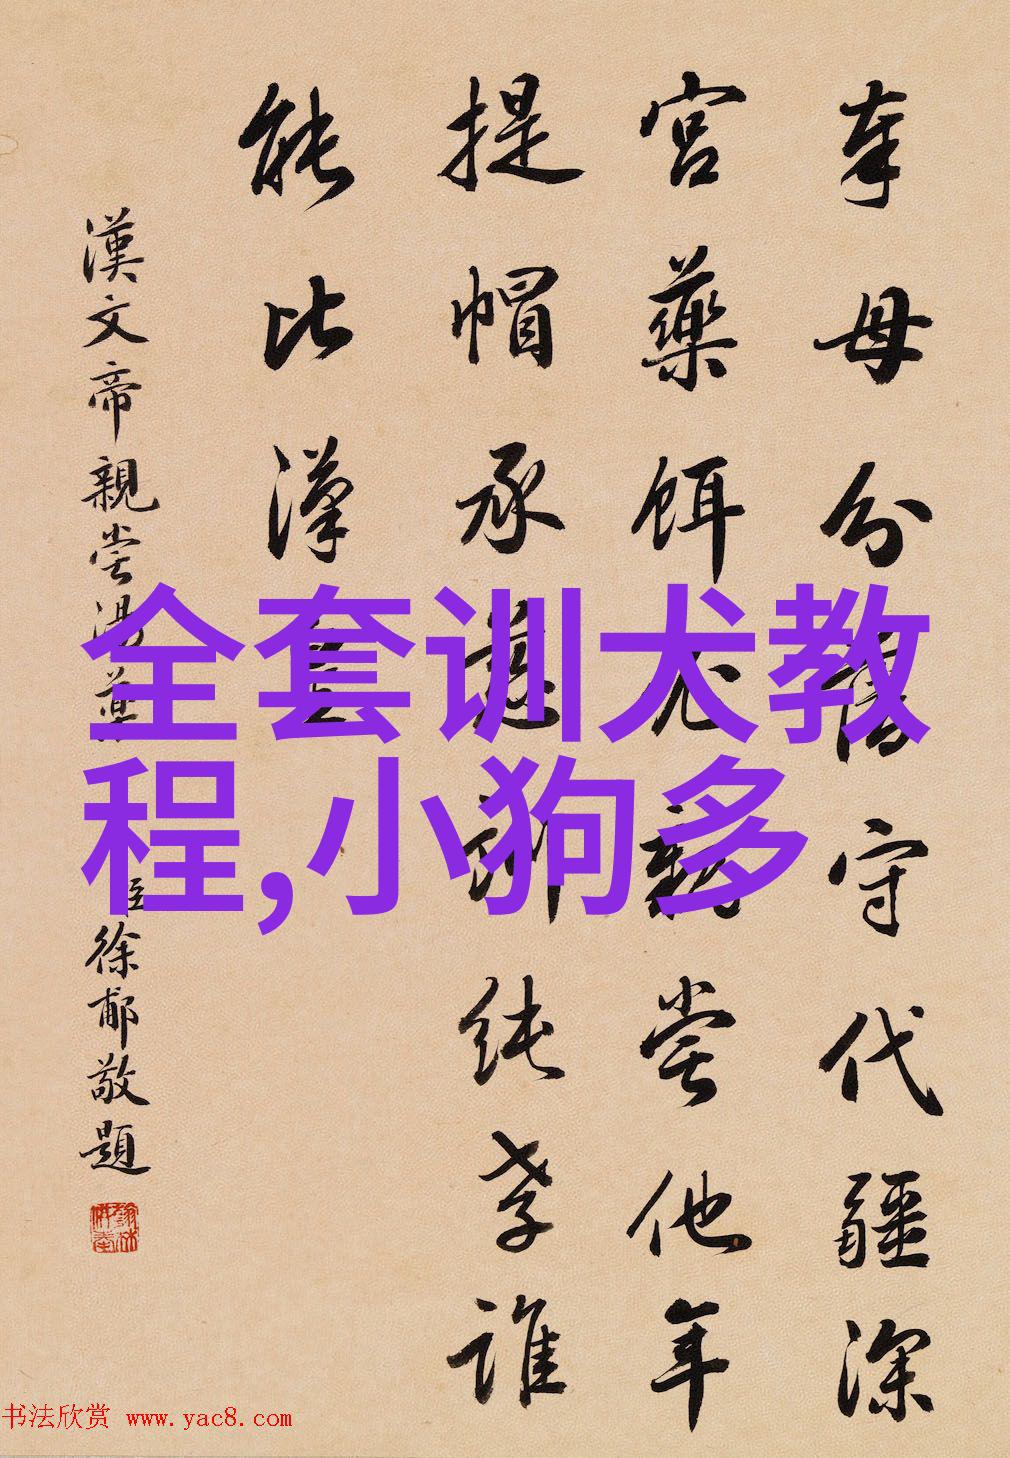 奉母分藩守代疆深
宮藥餌必親嘗他年
提帽承慈詔純孝誰
能比漢
漢文帝親嘗湯藥
臣徐郙敬題
全套训犬教
程,小狗多
书法欣赏 www.yac8.com